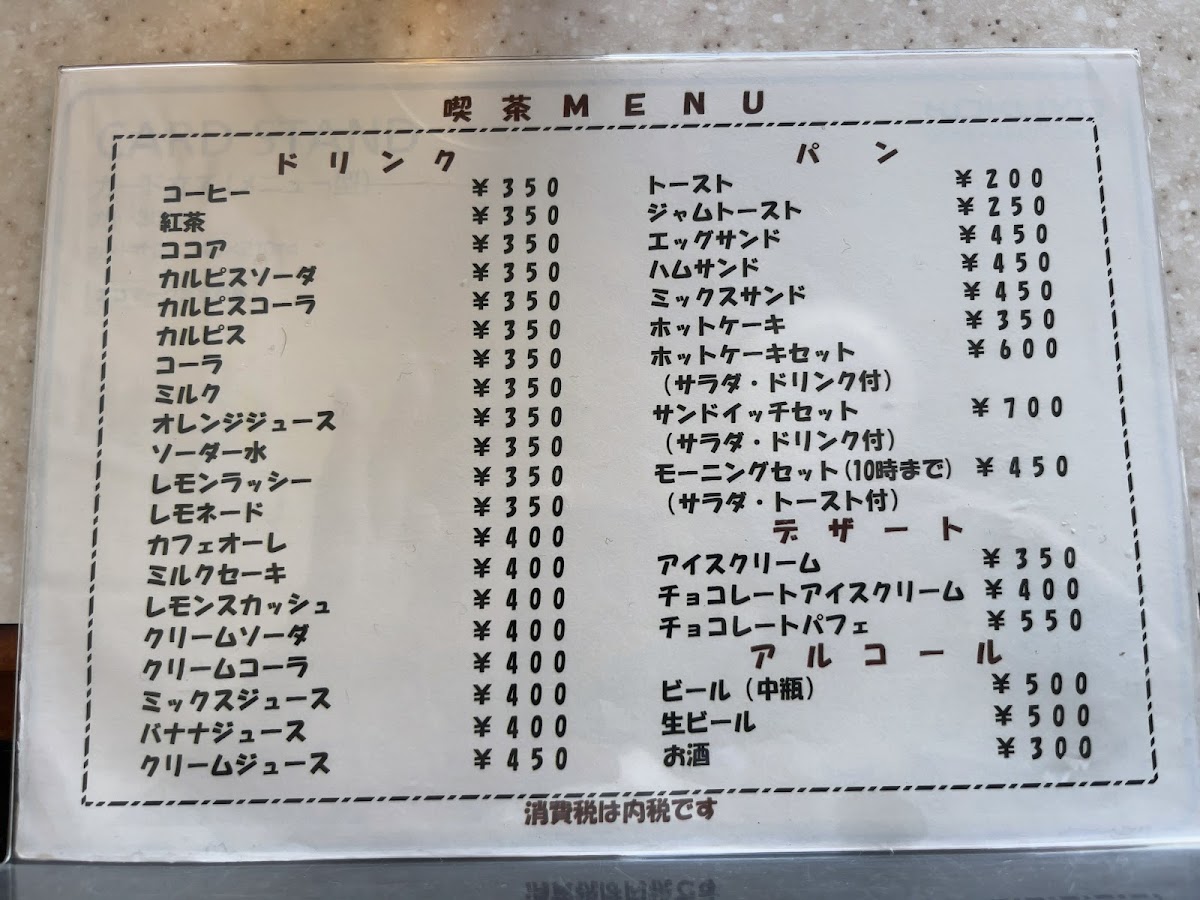 喫茶MENU
ドリンク
コーヒー ￥350
紅茶 ￥350
ココア ￥350
カルピスソーダ ￥350
カルピスコーラ ￥350
カルピス ￥350
コーラ ￥350
ミルク ￥350
オレンジジュース ￥350
ソーダー水 ￥350
レモンラッシー ￥350
レモネード ￥350
カフェオーレ ￥400
ミルクセーキ ￥400
レモンスカッシュ ￥400
クリームソーダ ￥400
クリームコーラ ￥400
ミックスジュース ￥400
バナナジュース ￥400
クリームジュース ￥450
パン
トースト ￥200
ジャムトースト ￥250
エッグサンド ￥450
ハムサンド ￥450
ミックスサンド ￥450
ホットケーキ ￥350
ホットケーキセット ￥600
（サラダ・ドリンク付）
サンドイッチセット ￥700
（サラダ・ドリンク付）
モーニングセット(10時まで) ￥450
（サラダ・トースト付）
デザート
アイスクリーム ￥350
チョコレートアイスクリーム ￥400
チョコレートパフェ ￥550
アルコール
ビール（中瓶） ￥500
生ビール ￥500
お酒 ￥300
消費税は内税です